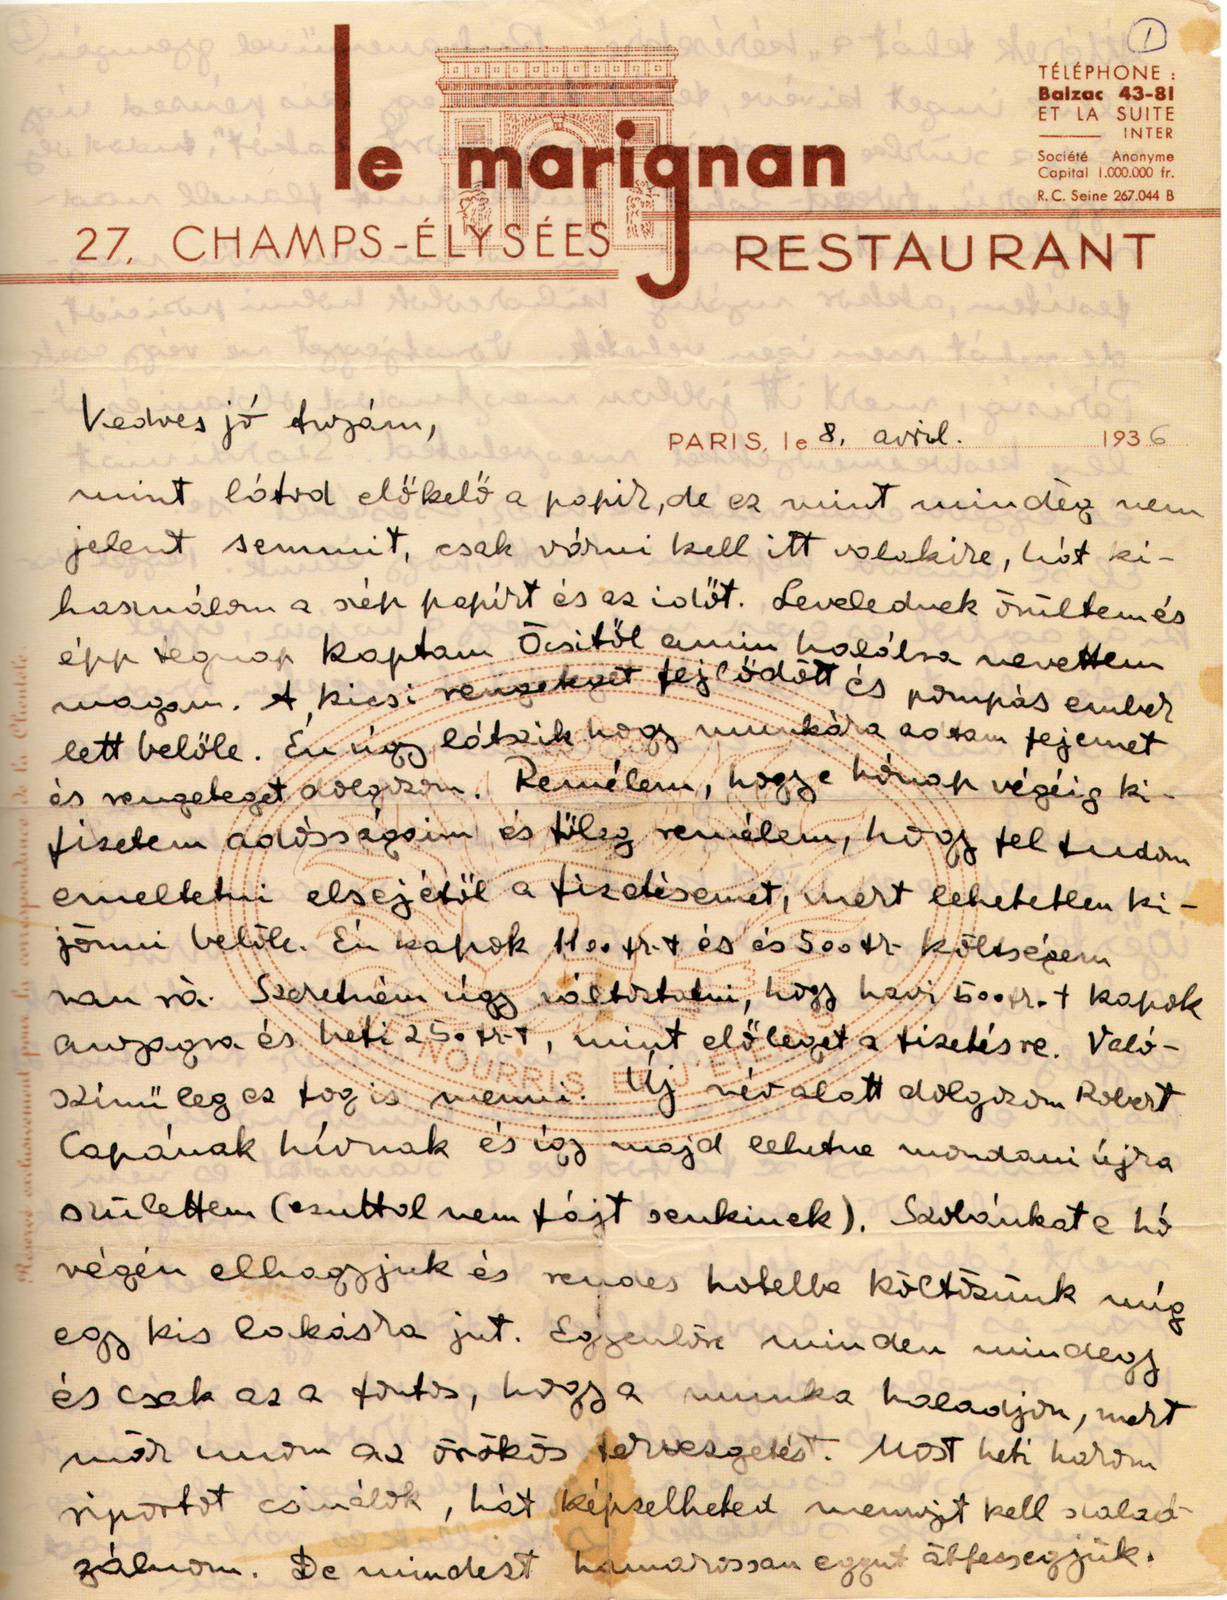 1
le marignan
TÉLÉPHONE :
Balzac 43-81
ET LA SUITE
INTER
Société Anonyme
Capital 1.000.000 fr.
R.C. Seine 267.044 B
27, CHAMPS-ÉLYSÉES
RESTAURANT
Kedves jó Anyám,
PARIS, le 8. avril. 1936
mint látod előkelő a papir, de ez mint mindég nem
jelent semmit, csak várni kell itt valakire, hát ki-
használom a szép papírt és az időt. Levelednek örültem és
épp tegnap kaptam Öcsitől amin halálra nevettem
magam. A kicsi rengeteget fejlődött és pompás ember
lett belőle. Én úgy látszik hogy munkára adtam fejemet
és rengeteget dolgozom. Remélem, hogy e hónap végéig ki-
fizetem adósságaim és főleg remélem, hogy fel tudom
emeltetni elsejétől a fizetésemet, mert lehetetlen ki-
jönni belőle. Én kapok 1100 fr-t és és 500 fr- költségem
van rá. Szeretném úgy változtatni, hogy havi 500 fr.-t kapok
anyagra és heti 250 fr-t, mint előleget a fizetésre. Való-
színűleg ez fog is menni. Új név alatt dolgozom Robert
Capának hívnak és így majd lehetne mondani újra
születtem (ezuttal nem fájt senkinek). Szobánkat e hó
végén elhagyjuk és rendes hotelba költözünk míg
egy kis lakásra jut. Egyenlőre minden mindegy
és csak az a fontos, hogy a munka haladjon, mert
már unom az örökös tervezgetést. Most heti három
riportot csinálok, hát képzelheted mennyit kell szalad-
gálnom. De mindezt hamarossan együt átfessegjük.
NOURRIS
Réservé exclusivement pour la correspondance de la Clientèle